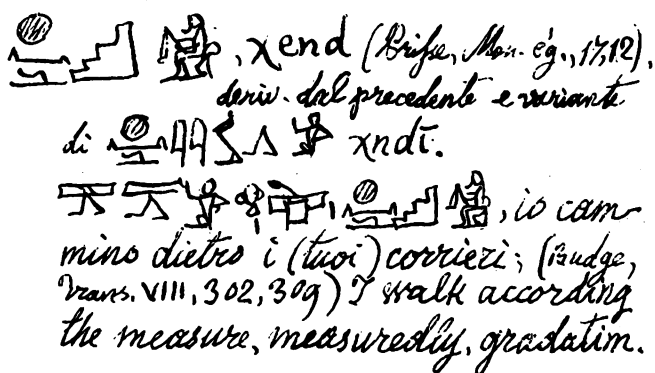 , χend (Prisse, Mon. ég., 17,12),
deriv. dal precedente e variante
di χndī.
, io cam-
mino dietro i (tuoi) corrieri; (Budge,
Trans. VIII, 302, 309) I walk according
the measure, measuredly, gradatim.